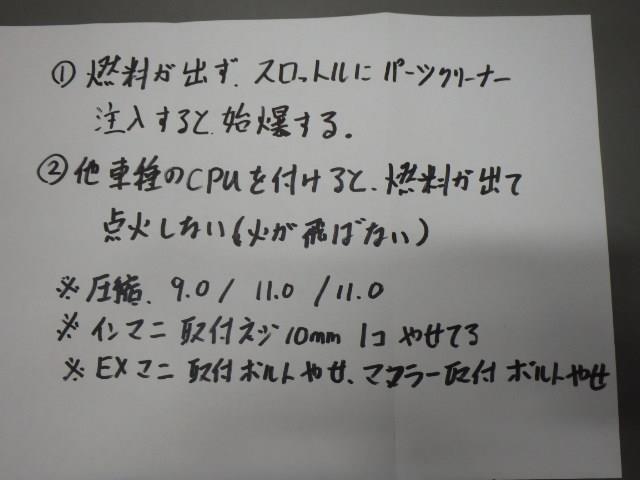 ① 燃料が出ず、スロットルにパーツクリーナー
注入すると、始爆する。
② 他車種のCPUを付けると、燃料が出て
点火しない(火が飛ばない)
※ 圧縮、9.0 / 11.0 / 11.0
※ インマニ 取付ネジ 10mm 1コ やせてる
※ EXマニ 取付ボルトやせ、マフラー取付 ボルトやせ